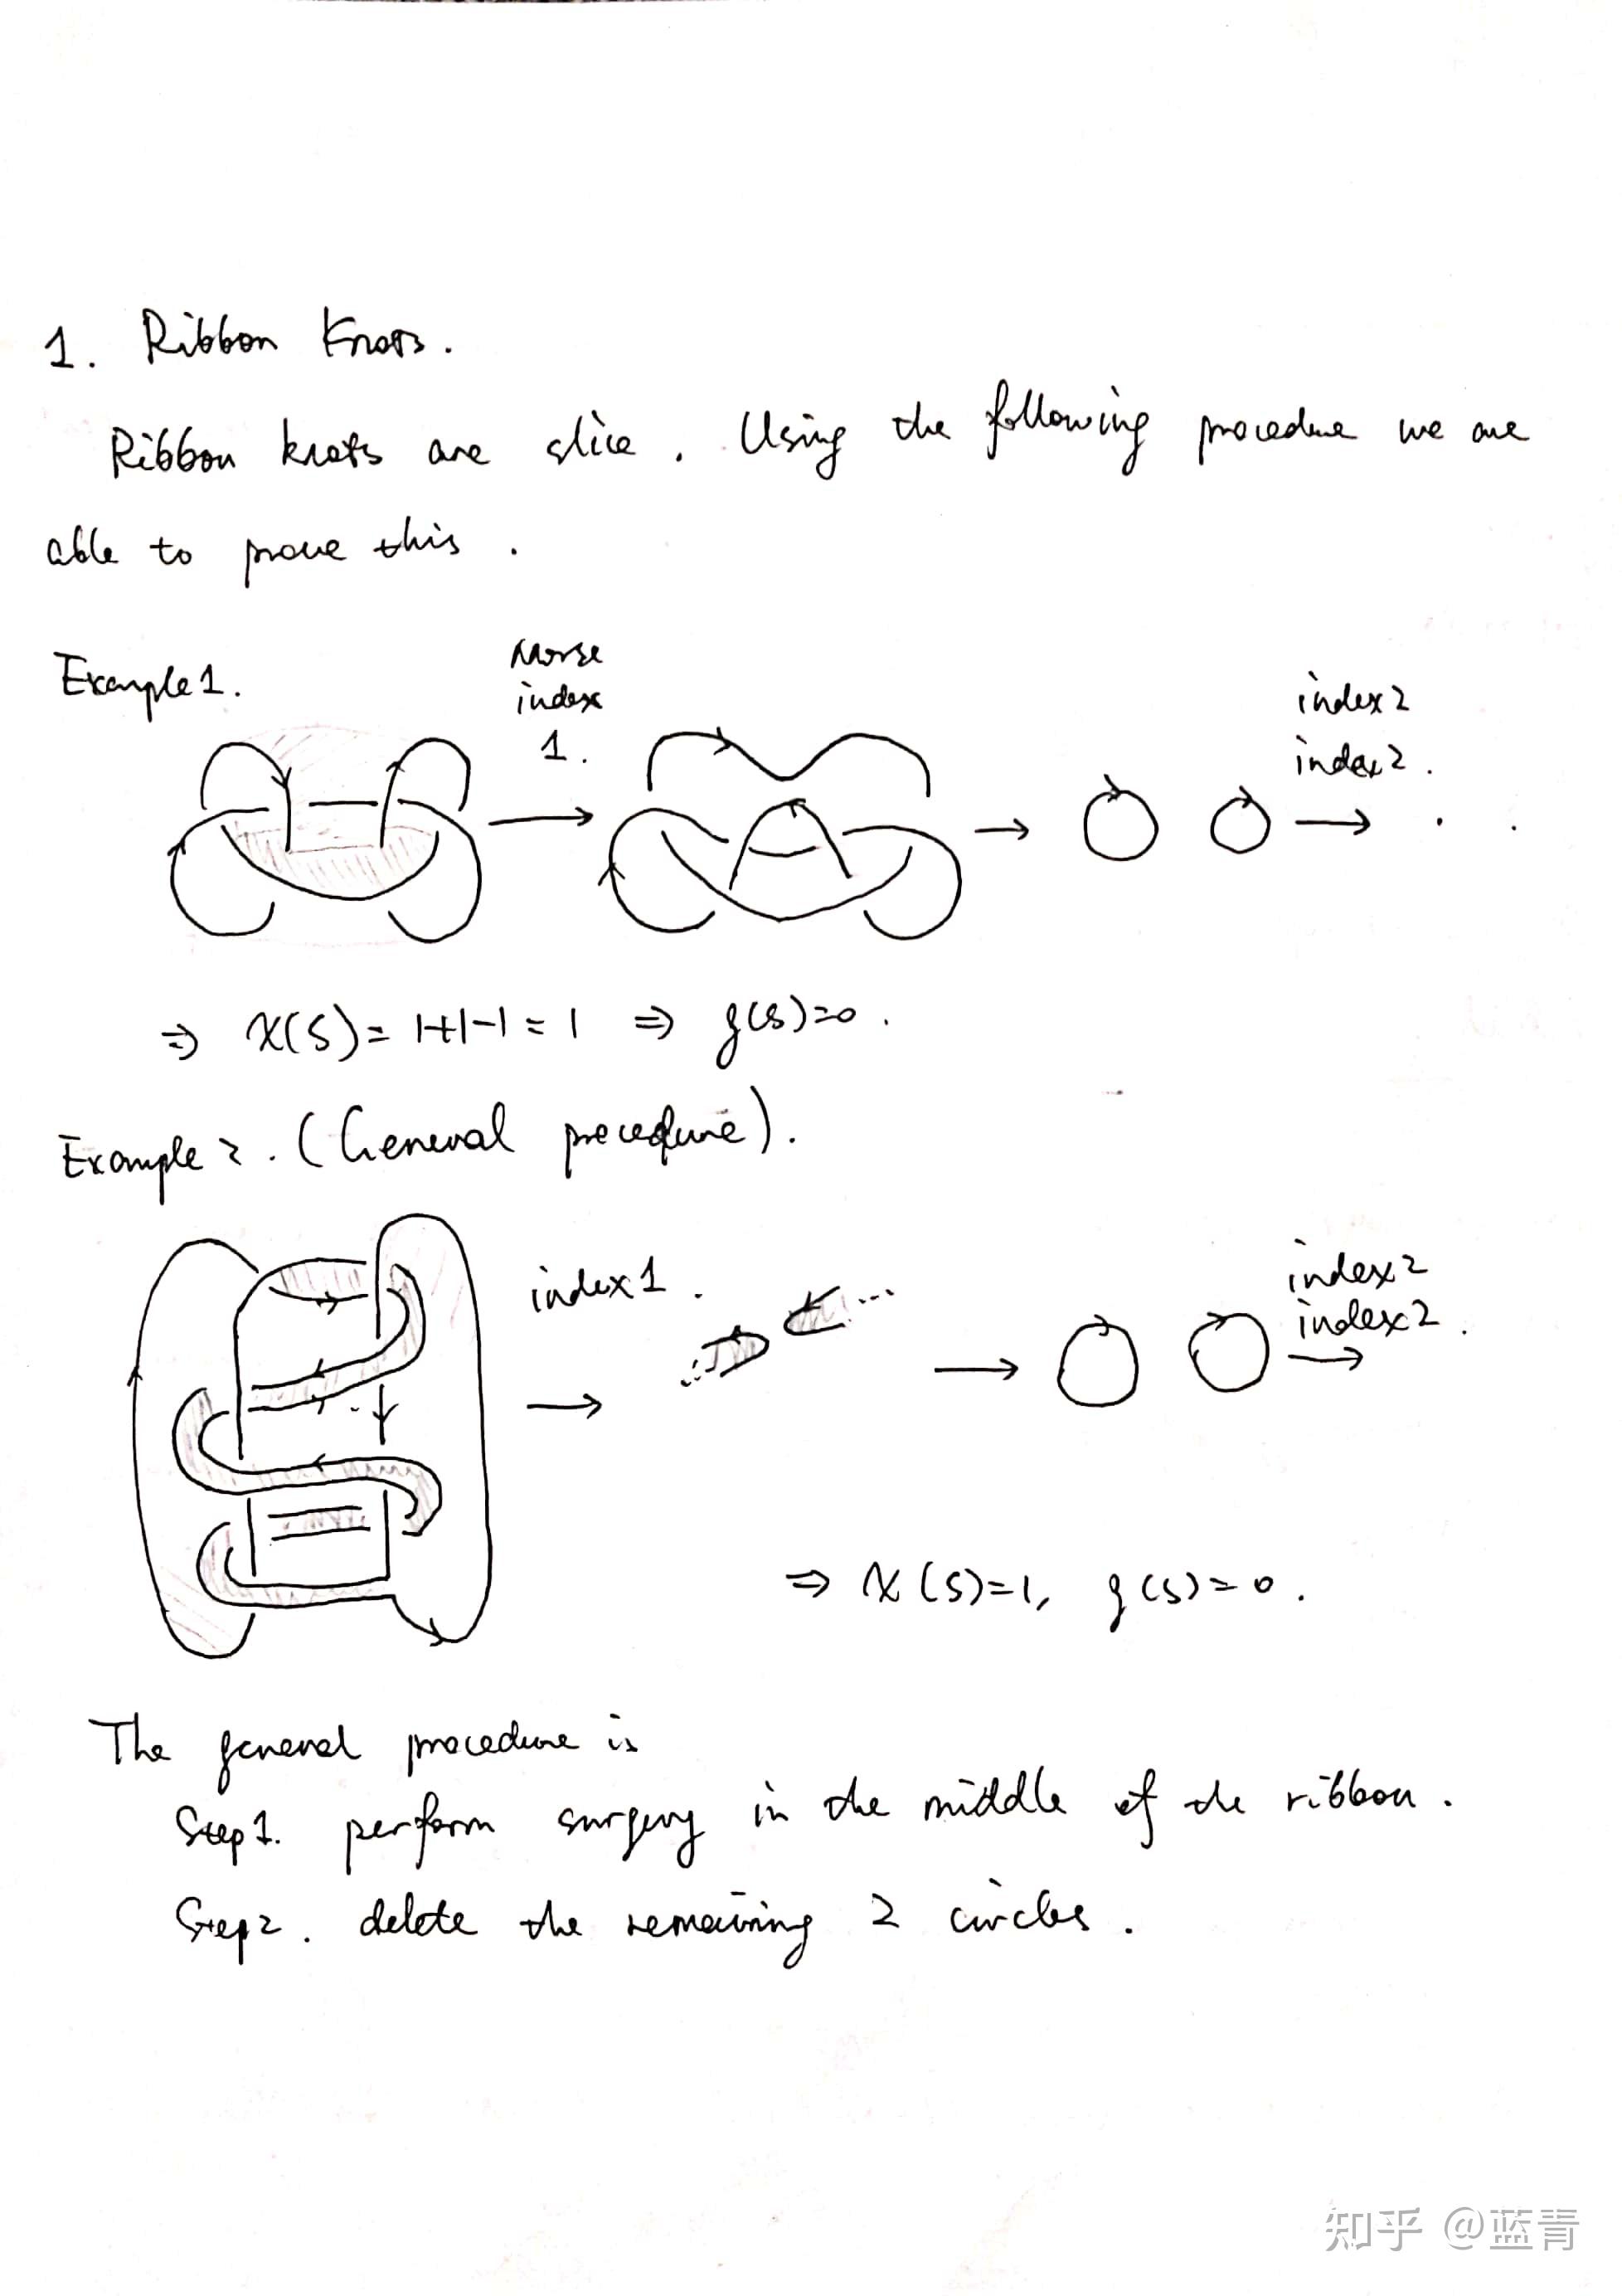 1. Ribbon Knots.
Ribbon knots are slice. Using the following procedure we are
able to prove this.
Example 1.
Morse
index
1.
index 2
index 2.
⇒ χ(S) = 1+1-1 = 1 ⇒ g(S)=0.
Example 2. (General procedure).
index 1.
index 2
index 2.
⇒ χ(S)=1, g(S)=0.
The general procedure is
Step 1. perform surgery in the middle of the ribbon.
Step 2. delete the remaining 2 circles.
知乎 @蓝青